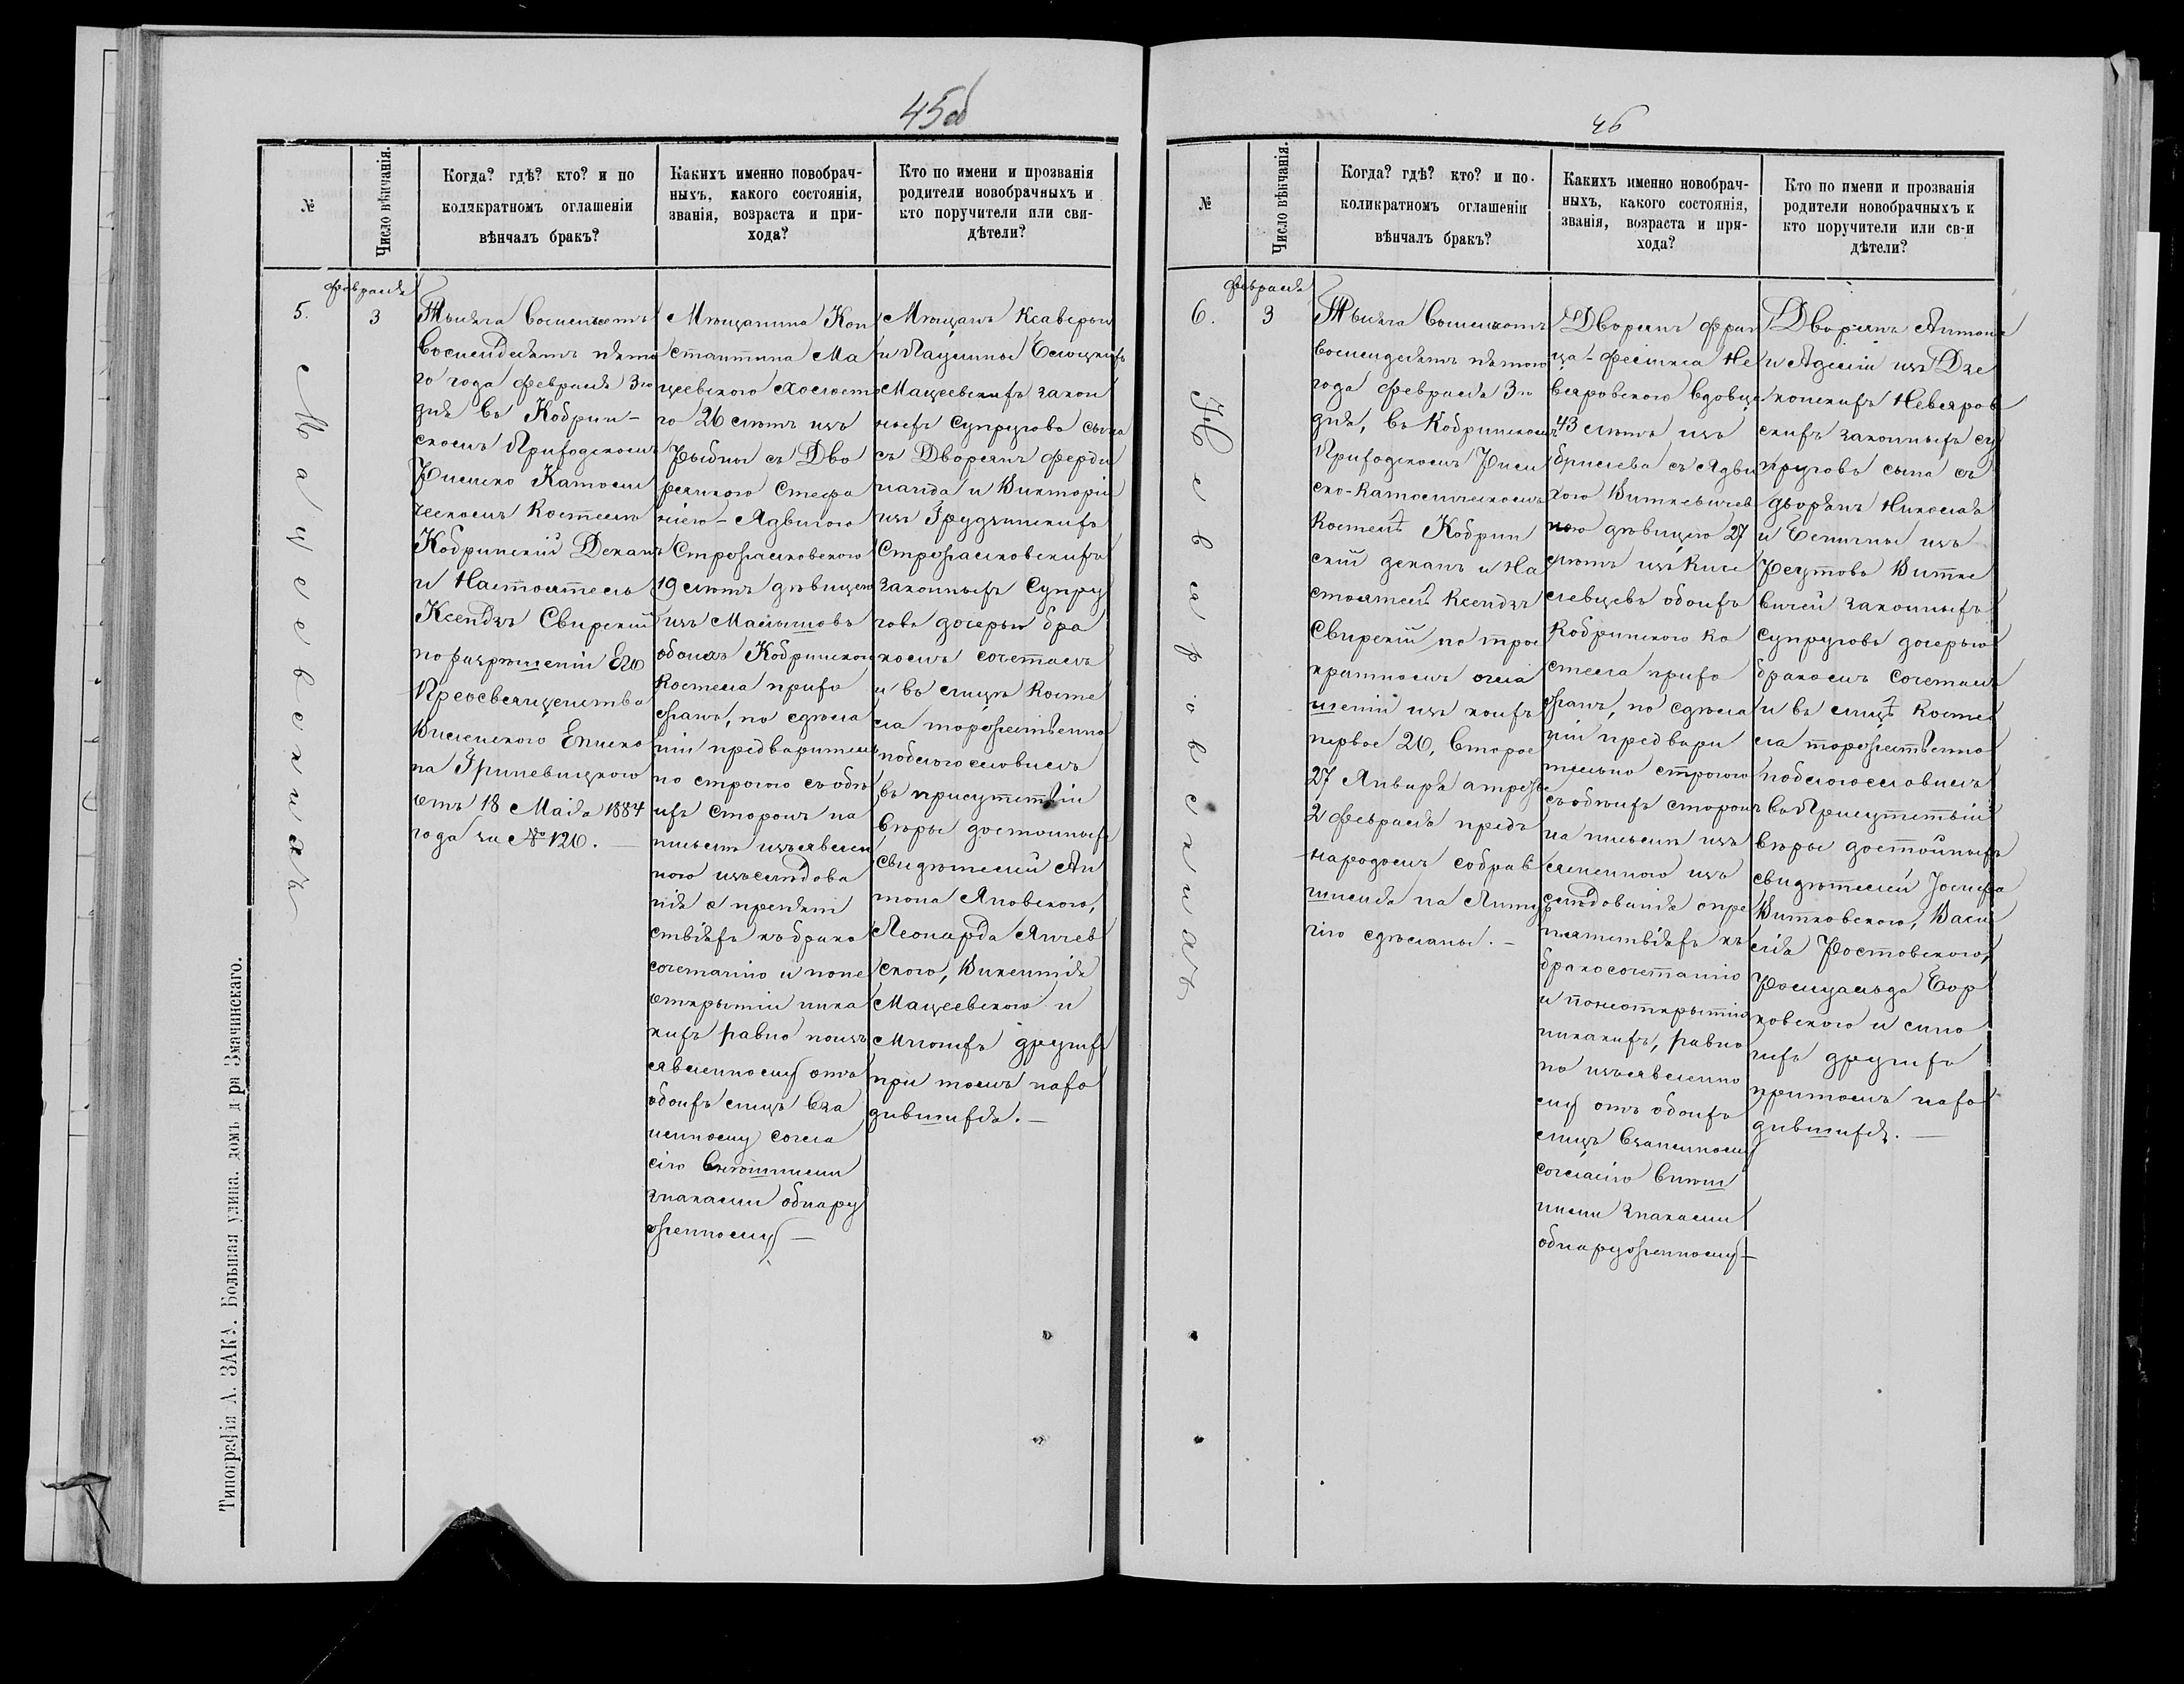 45об
№
Число вѣнчанія.
Когда? гдѣ? кто? и по
коликратномъ оглашеніи
вѣнчалъ бракъ?
Какихъ именно новобрач-
ныхъ, какого состоянія,
званія, возраста и при-
хода?
Кто по имени и прозванія
родители новобрачныхъ и
кто поручители или сви-
дѣтели?
Февраля
5.
3
Мацеевскихъ
Тысяча восемьсотъ
восемдесятъ пято
го года Февраля 3го
дня въ Кобрин-
скомъ Приходскомъ
Римско Католи
ческомъ Костелѣ
Кобринскій Деканъ
и Настоятель
Ксендзъ Свирскій
по разрѣшенію Его
Преосвященства
Виленского Еписко
па Гриневицкого
отъ 18 Маія 1884
года за № 120.
Мѣщанина Кон
стантина Ма
цеевского холосто
го 26 лѣтъ изъ
Рыбны съ Дво
рянкою Стефа
ніею-Ядвигою
Строжалковскою
19 лѣтъ дѣвицею
изъ
обоихъ Кобринскою
Костела прихо
жанъ, по сдѣла
ніи предваритель
но строгого съ обѣ
ихъ сторонъ на
письмѣ изъявлен
ного изслѣдова
нія о препят
ствіяхъ къ брако
сочетанію и поне
открытіи ника
кихъ равно поизъ
явленному отъ
обоихъ лицъ вза
имному согла
сію внѣшними
знаками обнару
женному —
Мѣщанъ Ксаверы
и Паулины
Мацеевскихъ закон
ныхъ супруговъ сына
съ Дворянъ Ферди
нанда и Викторіи
изъ Грудзинскихъ
Строжалковскихъ
законныхъ супру
говъ дочерью бра
комъ сочеталъ
и въ лицѣ Косте
ла торжественно
поблогословилъ
въ присутствіи
вѣры достойныхъ
свидѣтелей Ан
тона Яновского,
Леонарда
ского, Викентія
Мацеевского и
Многихъ другихъ
при томъ нахо
дившихся. —
Типографія А. ЗАКА. Большая улица. домъ д-ра Значинскаго.
46
№
Число вѣнчанія.
Когда? гдѣ? кто? и по-
коликратномъ оглашеніи
вѣнчалъ бракъ?
Какихъ именно новобрач-
ныхъ, какого состоянія,
званія, возраста и при-
хода?
Кто по имени и прозванія
родители новобрачныхъ к
кто поручители или св-и
дѣтели?
Февраля
6.
3
Невяровскихъ
Тысяча восемьсотъ
восемдесятъ пятого
года Февраля 3го
дня, въ Кобринскомъ
Приходскомъ Рим
ско-Католическомъ
Костелѣ Кобрин
скій деканъ и На
стоятель Ксендзъ
Свирскій по трое
кратномъ огла
шеніи изъ коихъ
первое 20, второе
27 Января а третье
2 Февраля предъ
народомъ собрав
шемся на Литур
гію сдѣланы. —
Дворянъ Фран
ца-Феликса Не
вяровского вдовца
43 лѣтъ изъ
Брилева съ Ядви
гою Виткевичев
ною дѣвицею 27
лѣтъ изъ Кисе
левцевъ обоихъ
Кобринского Ко
стела прихо
жанъ, по сдѣла
ніи предвари
тельно строгого
съ обѣихъ сторонъ
на письмѣ изъ
явленного изъ
слѣдованія о пре
пятствіяхъ къ
бракосочетанію
и понеоткрытію
никакихъ, равно
по изъявленно
му отъ обоихъ
лицъ взаимному
согласію внѣш
ними знаками
обнаруженному —
Дворянъ Антона
и Аделіи изъ Дзе
конскихъ Невяров
скихъ законныхъ су
пруговъ сына съ
дворянъ Николая
и Еленины изъ
Реутовъ Витке
вичей законныхъ
супруговъ дочерью
бракомъ сочеталъ
и въ лицѣ Косте
ла торжественно
поблогословилъ
въ Присутствіи
вѣры достойныхъ
свидѣтелей Іосифа
Витковского, Васи
лія Ростовского,
Ромуальда Бор
ковского и мно
гихъ другихъ
притомъ нахо
дившихся. —